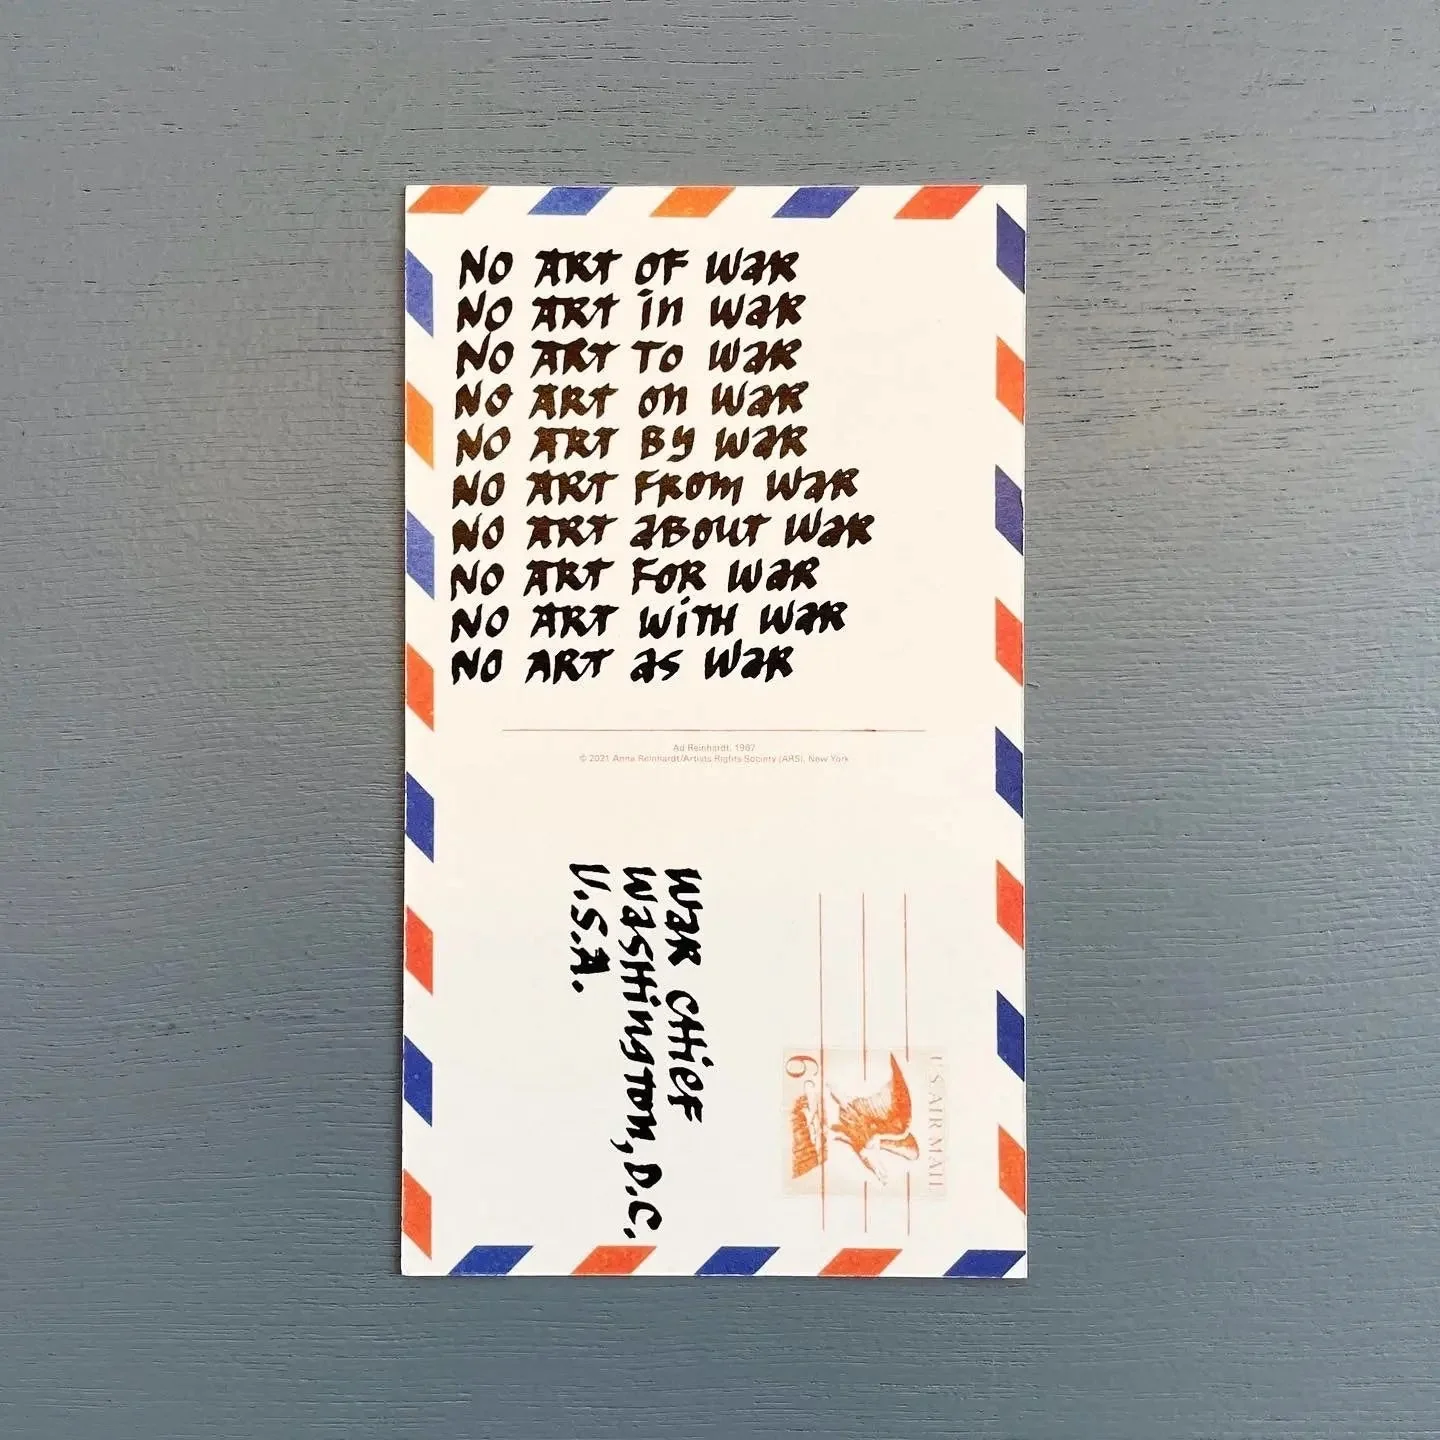 NO ART OF WAR
NO ART in WAR
NO ART TO WAR
NO ART on WAR
NO ART BY WAR
NO ART FROM WAR
NO ART ABOUT WAR
NO ART FOR WAR
NO ART WiTH WAR
NO ART as WAR
Ad Reinhardt, 1967
© 2021 Anna Reinhardt/Artists Rights Society (ARS), New York
WAR CHiEF
WASHington, D.C.
U.S.A.
U.S. AIR MAIL
6c